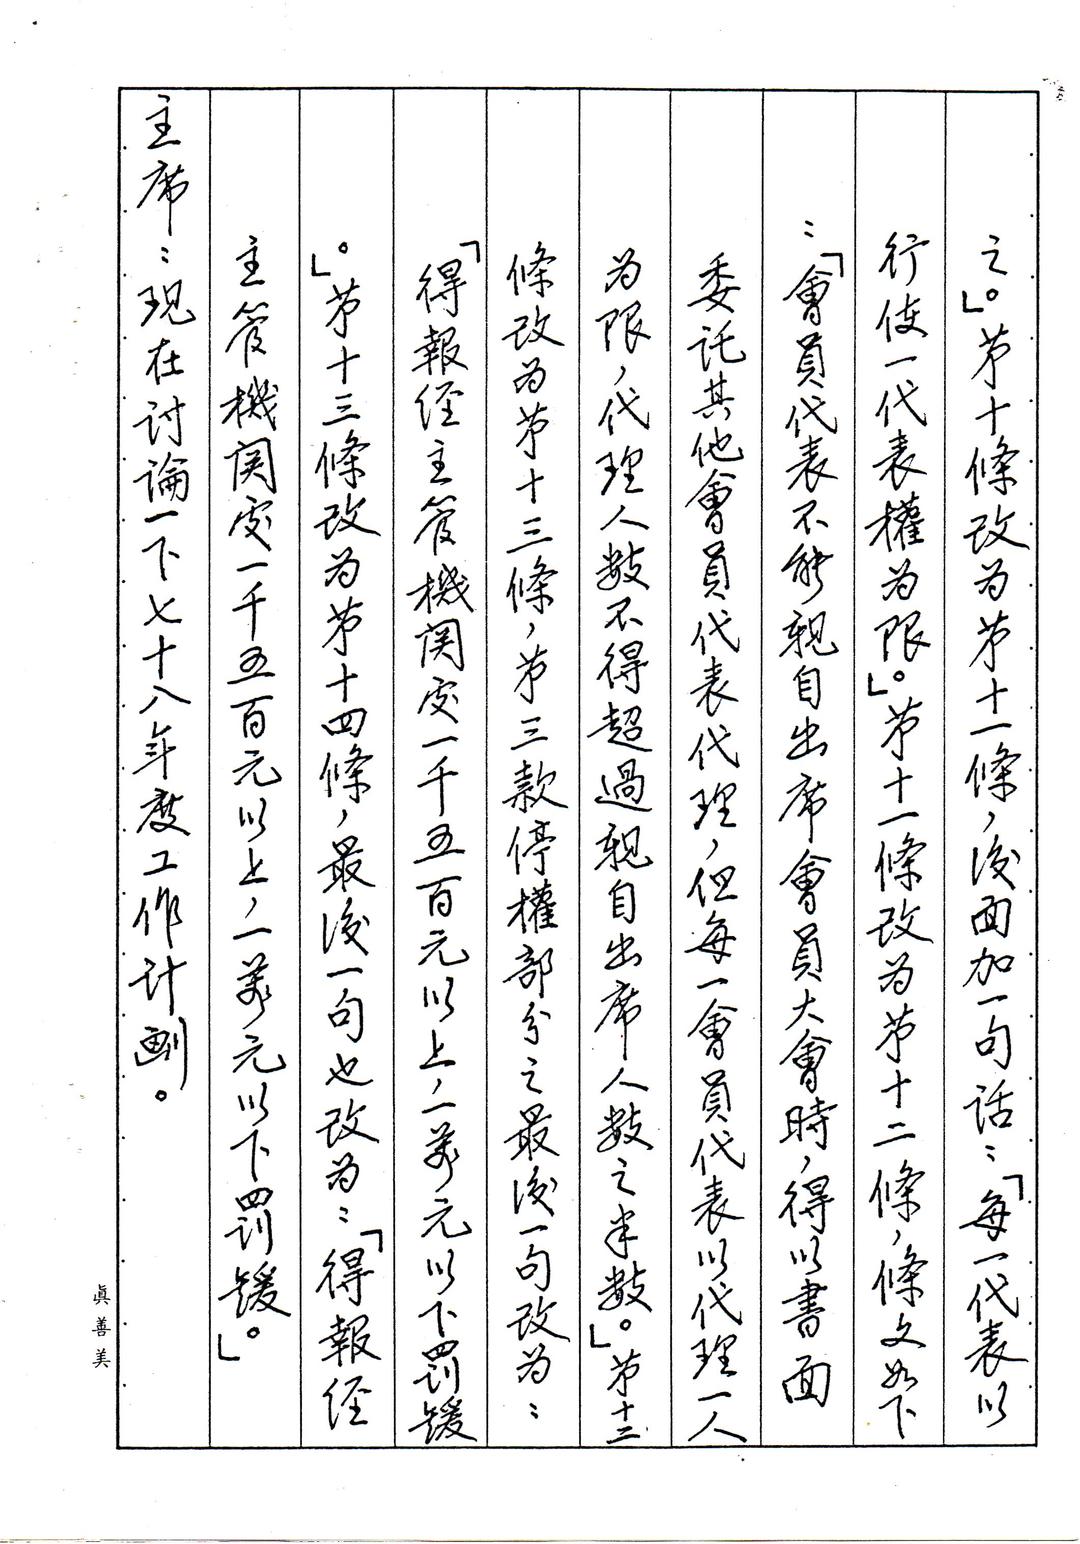 之。」第十條改为第十一條，後面加一句話：「每一代表以
行使一代表權为限」。第十一條改为第十二條，條文如下
：「會員代表不能親自出席會員大會時，得以書面
委託其他會員代表代理，但每一會員代表以代理一人
为限，代理人數不得超過親自出席人數之半數」。第十二
條改为第十三條，第三款停權部分之最後一句改为：
「得報经主管機関處一千五百元以上，一萬元以下罰鍰
」。第十三條改为第十四條，最後一句也改为：「得報经
主管機関處一千五百元以上，一萬元以下罰鍰」。
主席：現在討論一下七十八年度工作計劃。
眞善美